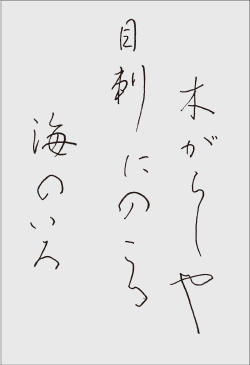 木がらしや
目刺にのこる
海のいろ